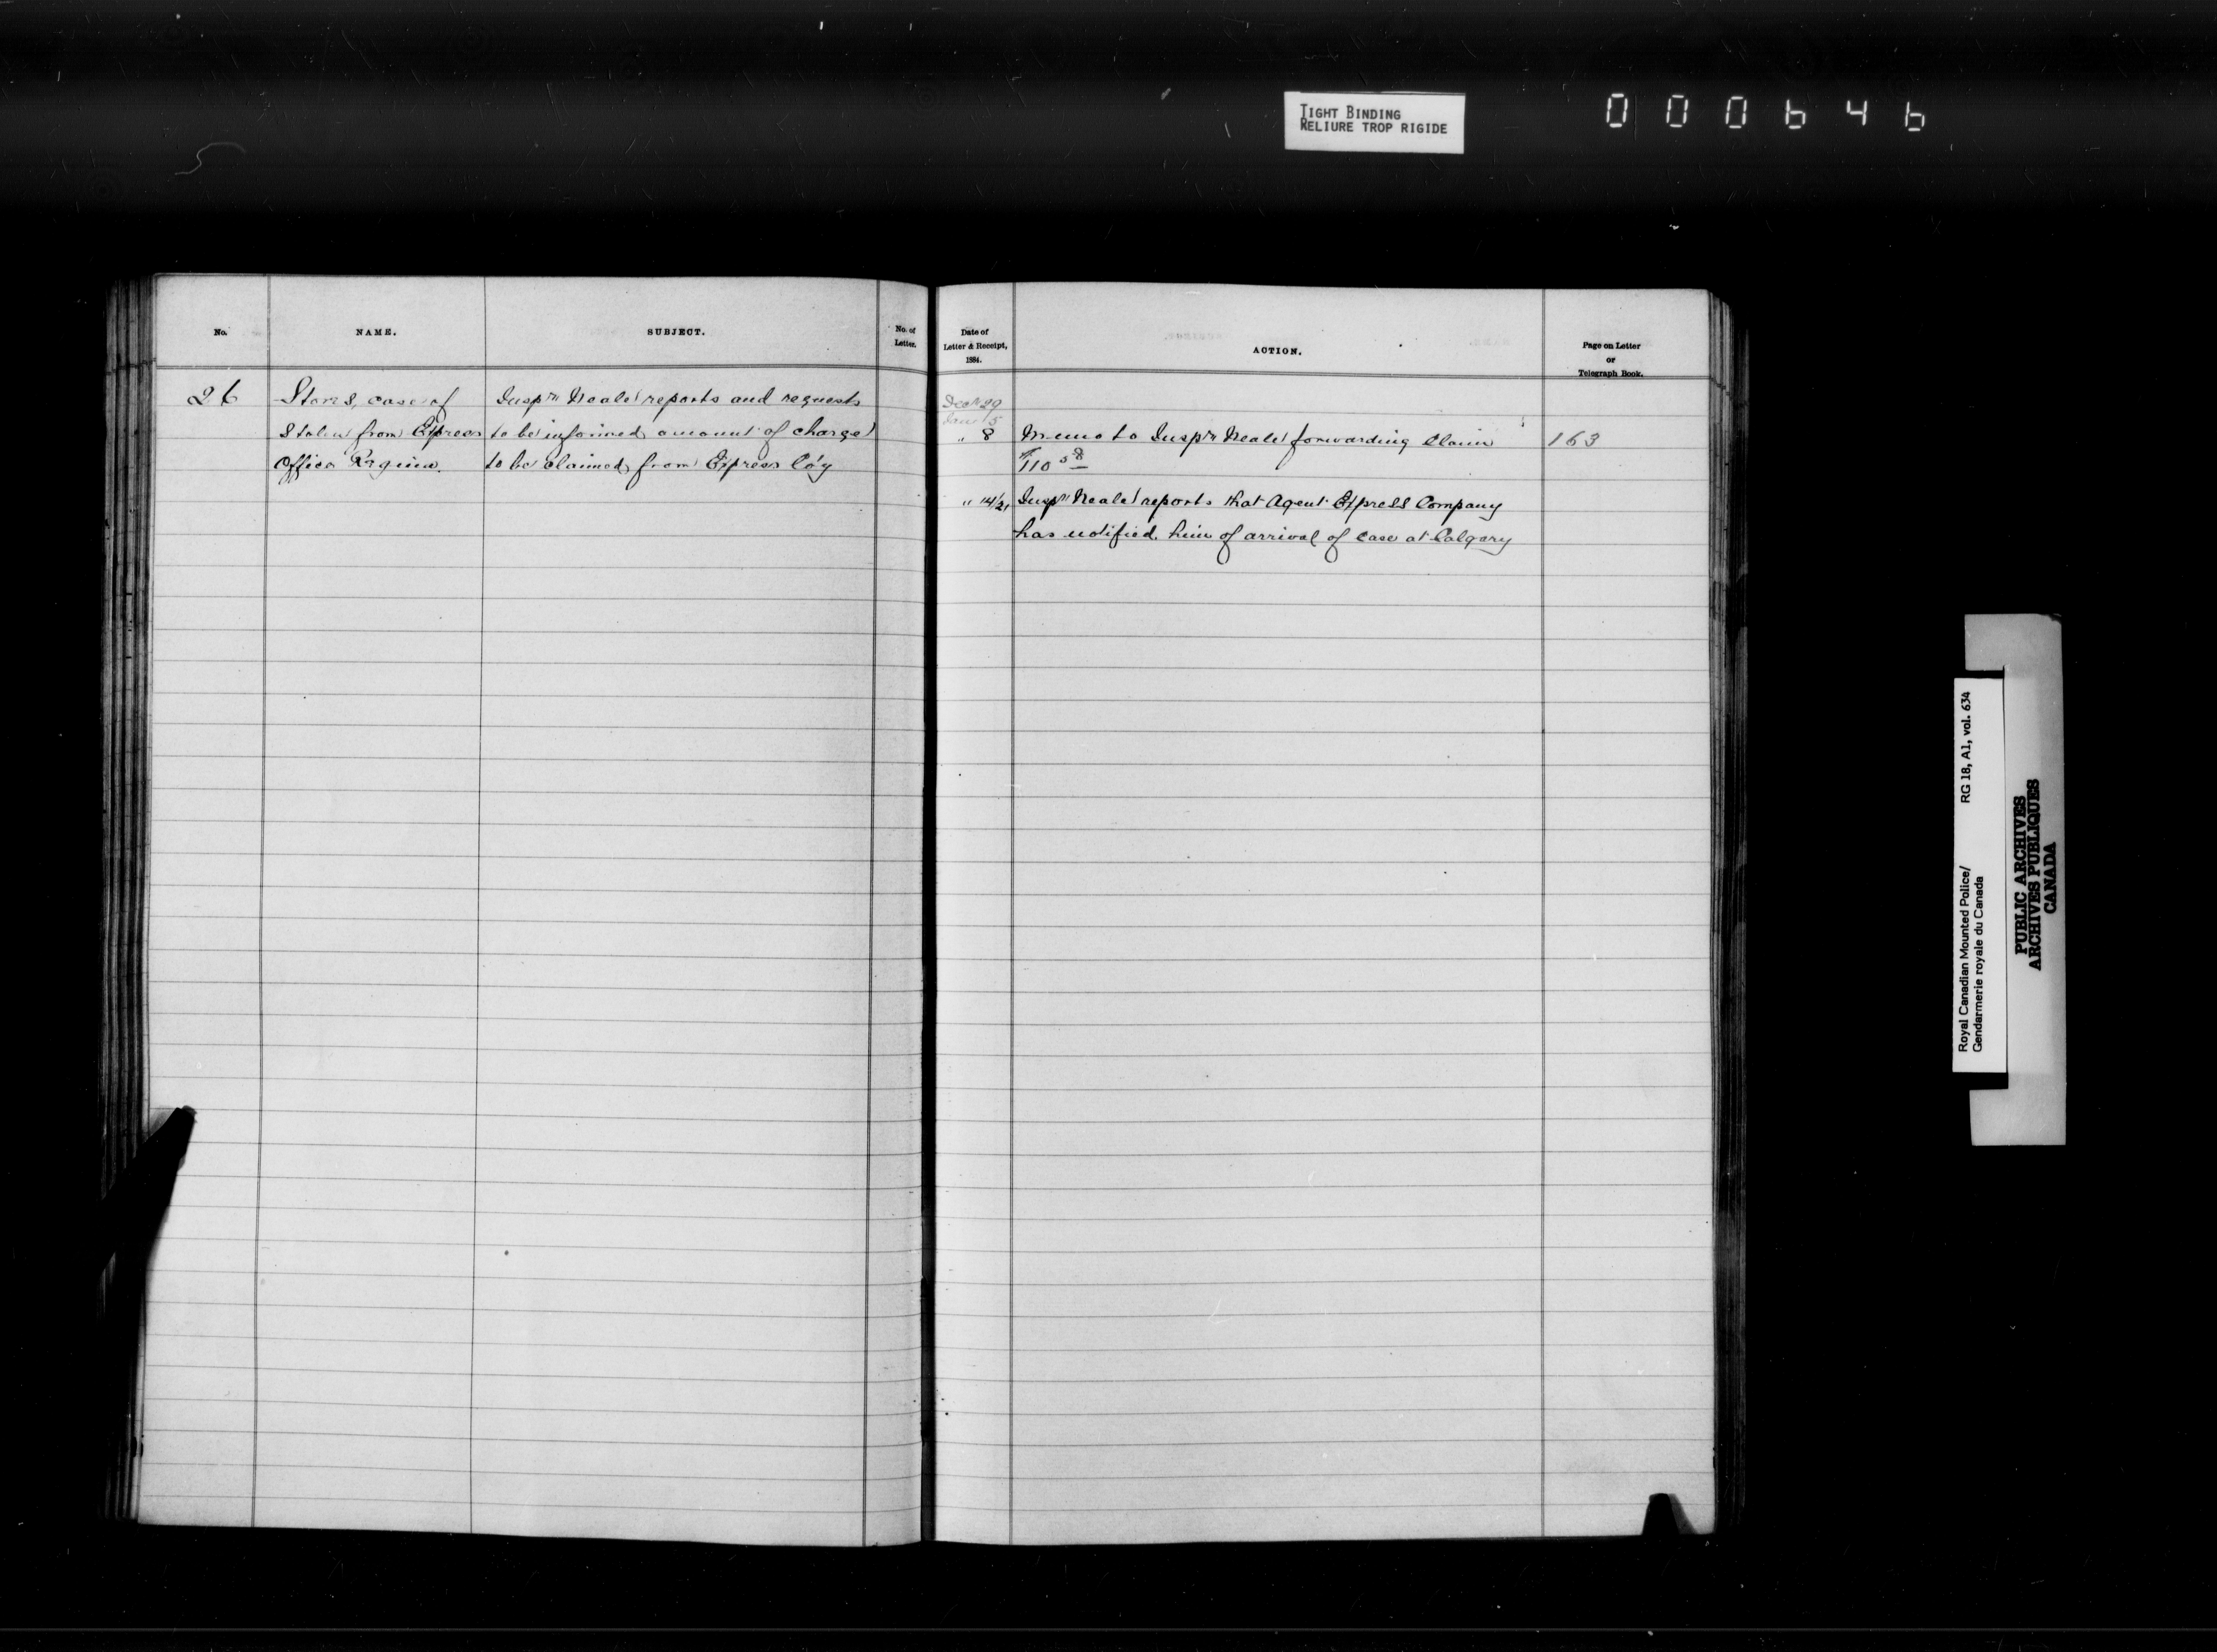 TIGHT BINDING
RELIURE TROP RIGIDE
000646
No.
NAME.
SUBJECT.
No. of
Letter.
Date of
Letter & Receipt,
1884.
ACTION.
Page on Letter
or
Telegraph Book.
26
Stores, case of
Stolen from Express
Office Regina.
Inspr Neale reports and requests
to be informed amount of charge
to be claimed from Express Co'y
Decr 29
Jan 5
" 8
Memo to Inspr Neale forwarding Claim
$110 58
163
" 14/21
Inspr Neale reports that Agent Express Company
has notified him of arrival of case at Calgary
Royal Canadian Mounted Police/
Gendarmerie royale du Canada
RG 18, A1, vol. 634
PUBLIC ARCHIVES
ARCHIVES PUBLIQUES
CANADA